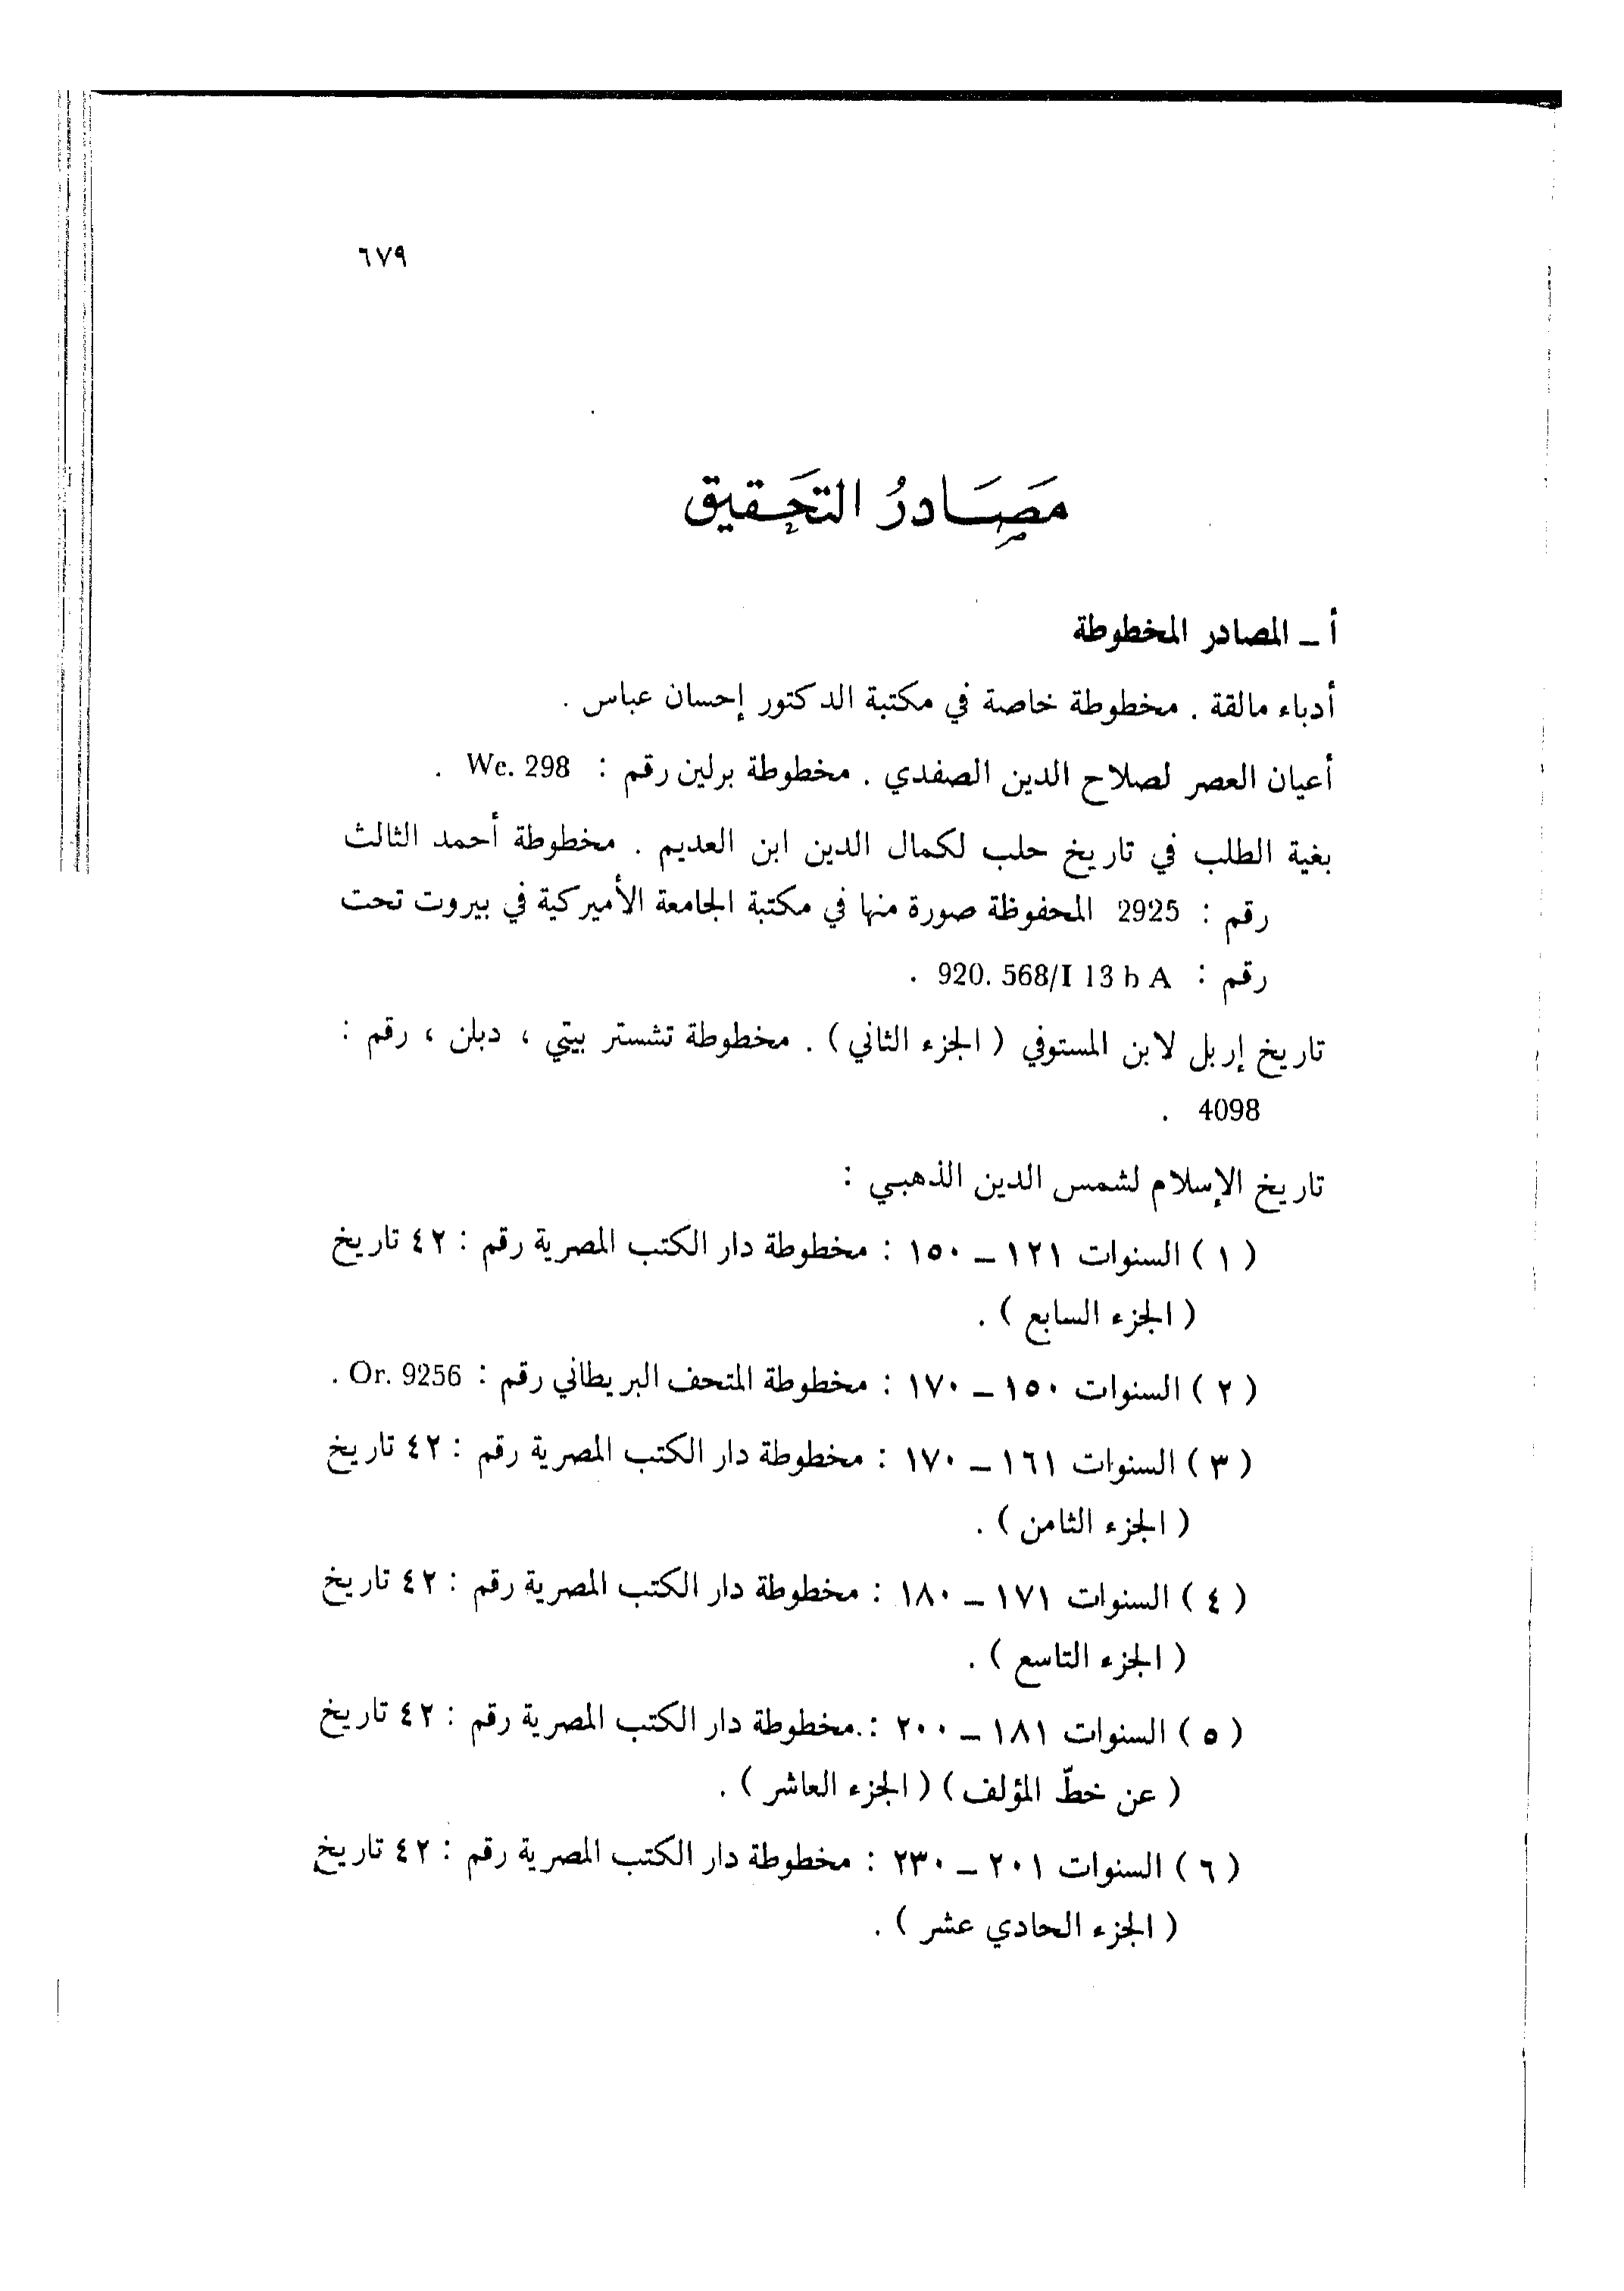 ٦٧٩
مَصَادرُ التحَقيق
أ ــ المصادر المخطوطة
أدباء مالقة . مخطوطة خاصة في مكتبة الدكتور إحسان عباس .
أعيان العصر لصلاح الدين الصفدي . مخطوطة برلين رقم : We. 298 .
بغية الطلب في تاريخ حلب لكمال الدين ابن العديم . مخطوطة أحمد الثالث
رقم : 2925 المحفوظة صورة منها في مكتبة الجامعة الأميركية في بيروت تحت
رقم : 920. 568/I 13 b A .
تاريخ إربل لابن المستوفي ( الجزء الثاني ) . مخطوطة تشستر بيتي ، دبلن ، رقم :
4098 .
تاريخ الإسلام لشمس الدين الذهبي :
( ١ ) السنوات ١٢١ ــ ١٥٠ : مخطوطة دار الكتب المصرية رقم : ٤٢ تاريخ
( الجزء السابع ) .
( ٢ ) السنوات ١٥٠ ــ ١٧٠ : مخطوطة المتحف البريطاني رقم : Or. 9256 .
( ٣ ) السنوات ١٦١ ــ ١٧٠ : مخطوطة دار الكتب المصرية رقم : ٤٢ تاريخ
( الجزء الثامن ) .
( ٤ ) السنوات ١٧١ ــ ١٨٠ : مخطوطة دار الكتب المصرية رقم : ٤٢ تاريخ
( الجزء التاسع ) .
( ٥ ) السنوات ١٨١ ــ ٢٠٠ : مخطوطة دار الكتب المصرية رقم : ٤٢ تاريخ
( عن خطّ المؤلف ) ( الجزء العاشر ) .
( ٦ ) السنوات ٢٠١ ــ ٢٣٠ : مخطوطة دار الكتب المصرية رقم : ٤٢ تاريخ
( الجزء الحادي عشر ) .